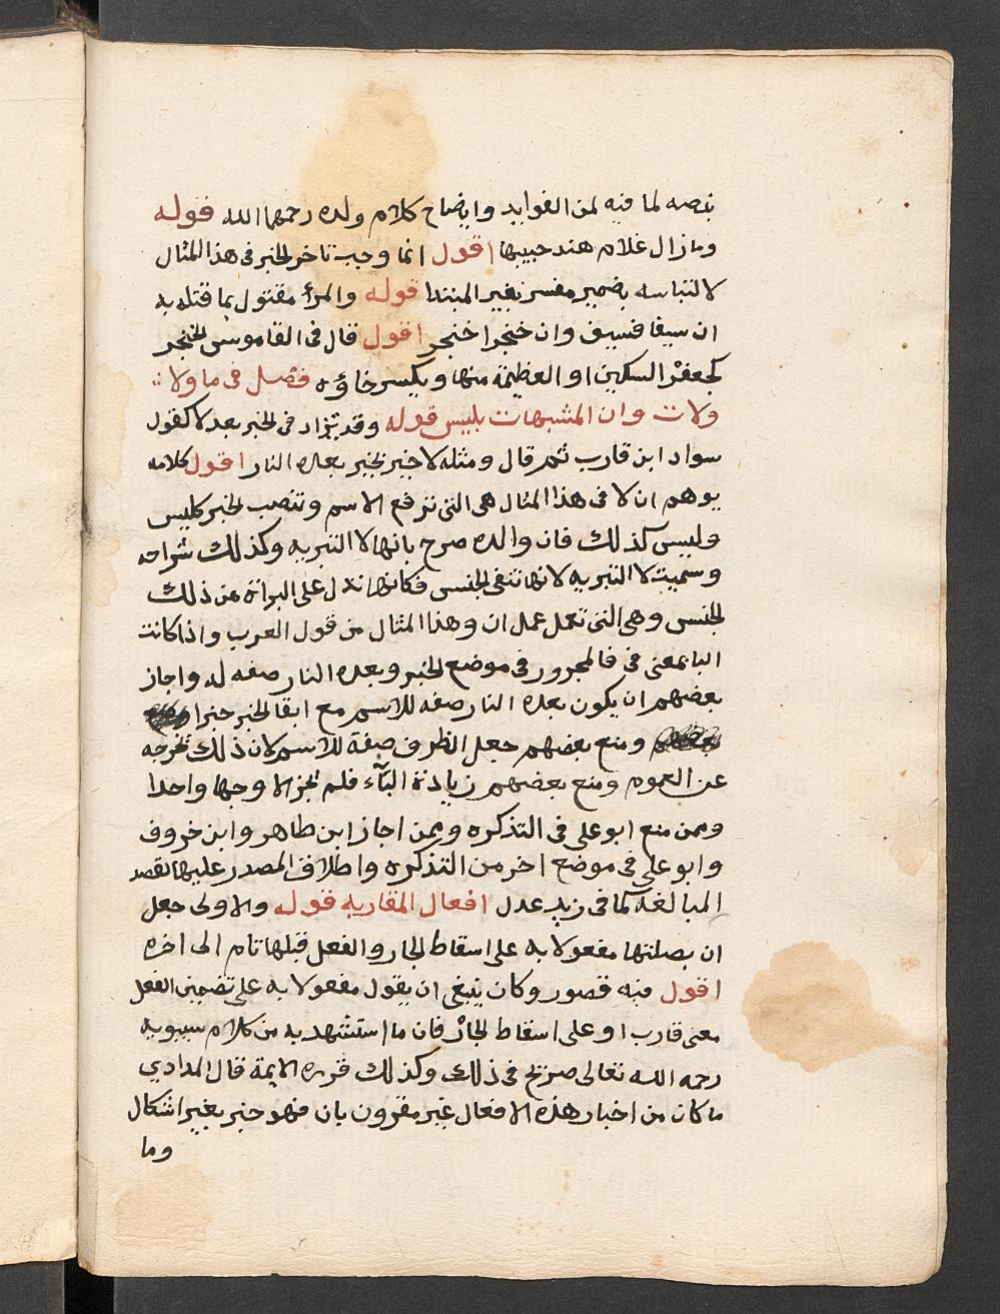 بنصه لما فيه لمن الفوايد وايضاح كلام ولده رحمهما الله قوله
وما زال غلام هند حبيبها اقول انما وجب تاخر الخبر فى هذا المثال
لالتباسه بضمير مفسر بغير المبتدا قوله والمرأ مقتول بما قتله به
ان سيفا فسيف وان خنجرا خنجر اقول قال فى القاموس الخنجر
كجعفر السكين او العظيمة منها ويكسر خاؤه فصل فى ما ولا
ولات وان المشبهات بليس قوله وقد تزاد فى الخبر بعد لا كقول
سواد ابن قارب ثم قال ومثله لا خير بخير بعده النار اقول كلامه
يوهم ان لا فى هذا المثال هى التى ترفع الاسم وتنصب الخبر كليس
وليس كذلك فان والده صرح بانها لا التبريه وكذلك شراحه
وسميت لا التبريه لانها تنفى الجنس فكانها تدل على البراة من ذلك
الجنس وهى التى تعمل عمل ان وهذا المثال من قول العرب واذا كانت
البا بمعنى فى فالمجرور فى موضع الخبر وبعده النار صفه له واجاز
بعضهم ان يكون بعده النار صفه للاسم مع ابقا الخبر خبرا
ومنع بعضهم جعل الظرف صفة للاسم لان ذلك يخرجه
عن العموم ومنع بعضهم زيادة البآء فلم يجز الا وجها واحدا
وممن منع ابو على فى التذكره وممن اجاز ابن طاهر وابن خروف
وابو على فى موضع اخر من التذكره واطلاق المصدر عليها لقصد
المبالغة كما فى زيد عدل افعال المقاربه قوله والاولى جعل
ان بصلتها مفعولا به على اسقاط الجار والفعل قبلها تام الى اخره
اقول فيه قصور وكان ينبغى ان يقول مفعولا به على تضمين الفعل
معنى قارب او على اسقاط الجار فان ما استشهد به من كلام سيبويه
رحمه الله تعالى صريح فى ذلك وكذلك قرره الايمة قال المرادي
ما كان من اخبار هذه الافعال غير مقرون بان فهو خبر بغير اشكال
وما